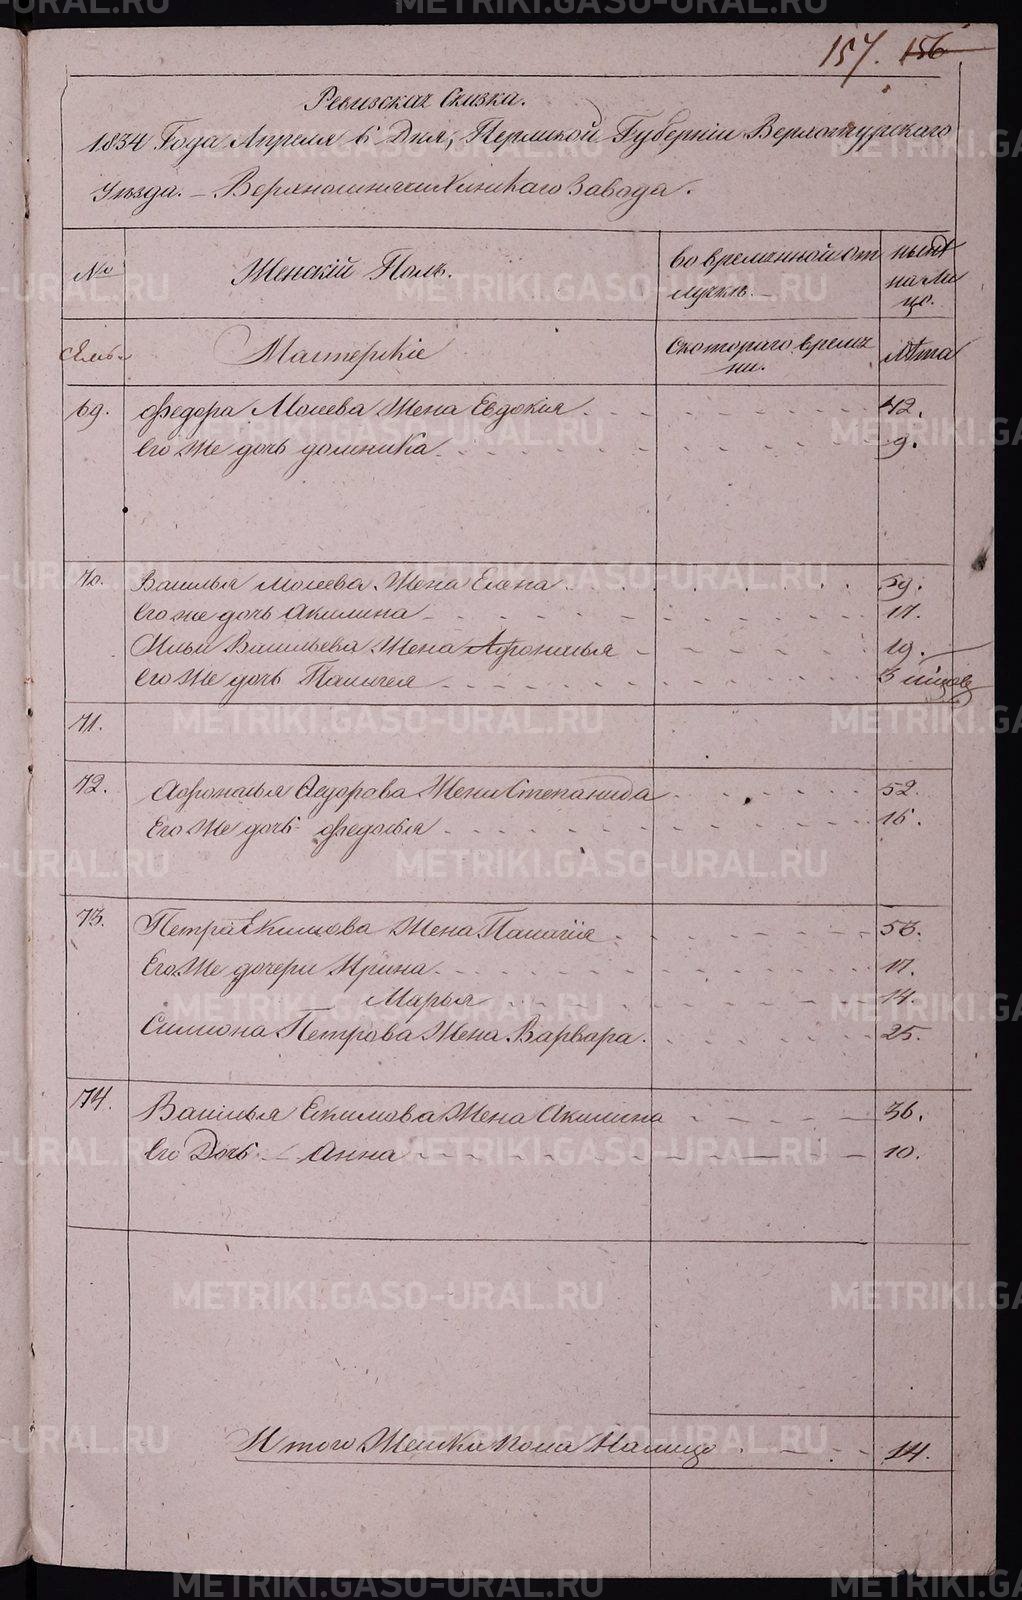 157. 156
Ревизская Сказка.
1834 Года Апреля 6 Дня, Пермской Губернiи Верхотурскаго
Уѣзда. – Верхнесинячихинскаго Завода.
№
Женскiй Полъ.
во временной от
лучкѣ. –
нынѣ
на ли
цо.
Семь.
Мастерскiе
С котораго време
ни.
Лѣта
69. Федора Мосеева Жена Евдокiя 42.
Его Же дочь домника 9.
70. Василья Мосеева Жена Елена 59.
Его же дочь Акилина 17.
Ильи Васильева Жена Афросинья 19.
Его Же дочь Паша 3 мѣсяц
71.
72. Афонасья Федорова Жена Степанида 52.
Его Же дочь Федосья 16.
73. Петра Екимова Жена Палагiя 56.
Его Же дочери Ирина 17.
Марья 14.
Симиона Петрова Жена Варвара. 25.
74. Василья Екимова Жена Акилина 36.
Его Дочь – Анна 10.
Итого Женска пола Налицо 14.
METRIKI.GASO-URAL.RU